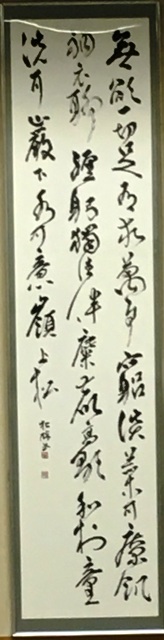 無欲一切足有求萬事窮淡菜可療飢
衲衣聊纏躬獨往伴麋鹿高歌和村童
洗耳巖下水可意嶺上松